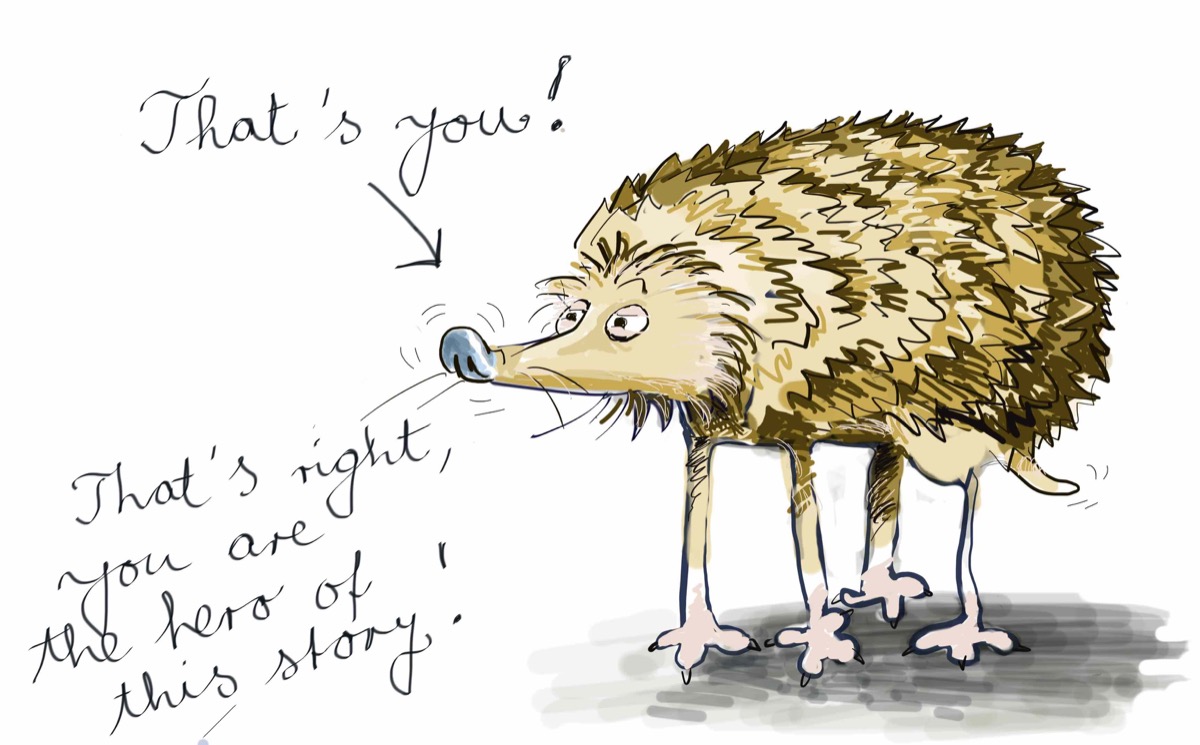 That's you!
That's right,
you are
the hero of
this story!